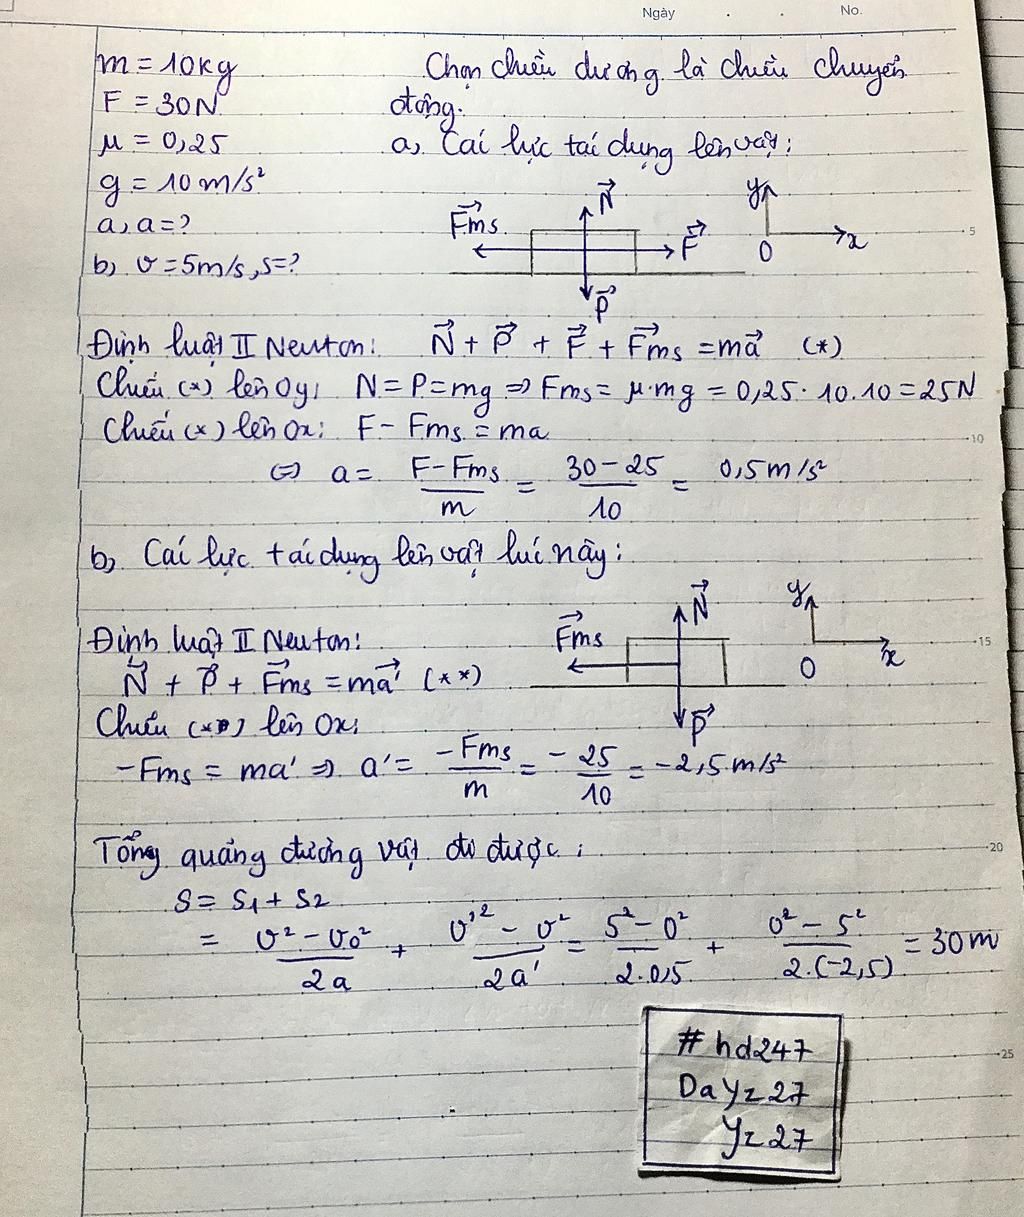 Ngày . . No.
m = 10kg
F = 30N
μ = 0,25
g = 10 m/s²
a, a = ?
b) v = 5m/s, s = ?
Chọn chiều dương là chiều chuyển
động.
a, Các lực tác dụng lên vật:
N⃗
F⃗ms
F⃗
P⃗
y
O
x
5
Định luật II Newton: N⃗ + P⃗ + F⃗ + F⃗ms = ma⃗ (*)
Chiếu (*) lên Oy: N = P = mg ⇒ Fms = μ.mg = 0,25. 10.10 = 25N
Chiếu (*) lên Ox: F - Fms = ma
10
⇔ a = (F - Fms)/m = (30 - 25)/10 = 0,5 m/s²
b, Các lực tác dụng lên vật lúc này:
N⃗
F⃗ms
P⃗
y
O
x
15
Định luật II Newton:
N⃗ + P⃗ + F⃗ms = ma⃗' (**)
Chiếu (**) lên Ox:
-Fms = ma' ⇒ a' = -Fms/m = -25/10 = -2,5 m/s²
Tổng quảng đường vật đi được:
20
S = S₁ + S₂
= (v² - v₀²)/2a + (v'² - v²)/2a' = (5² - 0²)/2.0,5 + (0² - 5²)/2.(-2,5) = 30m
# hd247
DaYz27
Yz27
25